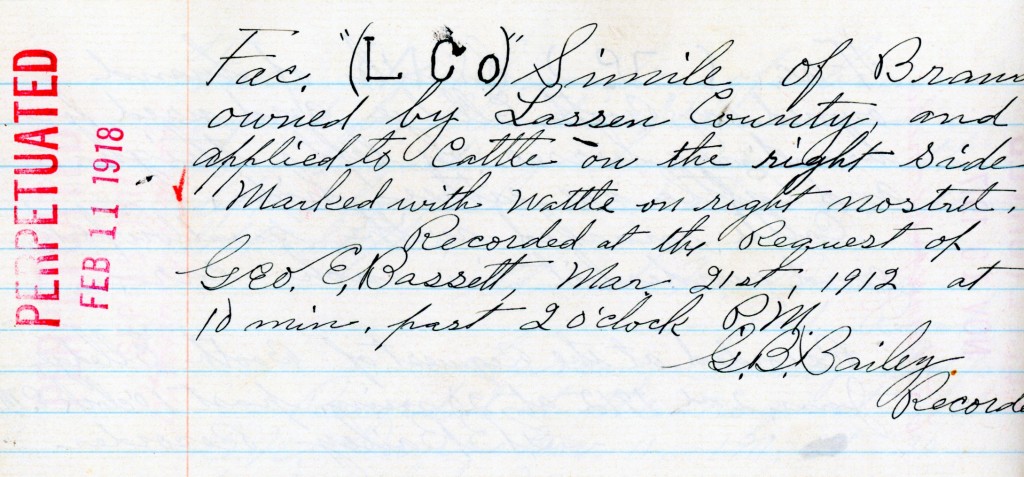 PERPETUATED
FEB 11 1918
Fac. "(L Co)" Simile of Bran
owned by Lassen County, and
applied to Cattle on the right side
Marked with wattle on right nostril.
Recorded at the Request of
Geo. E. Bassett, Mar. 21st, 1912 at
10 min. past 2 o'clock P.M.
G. B. Bailey
Recorde